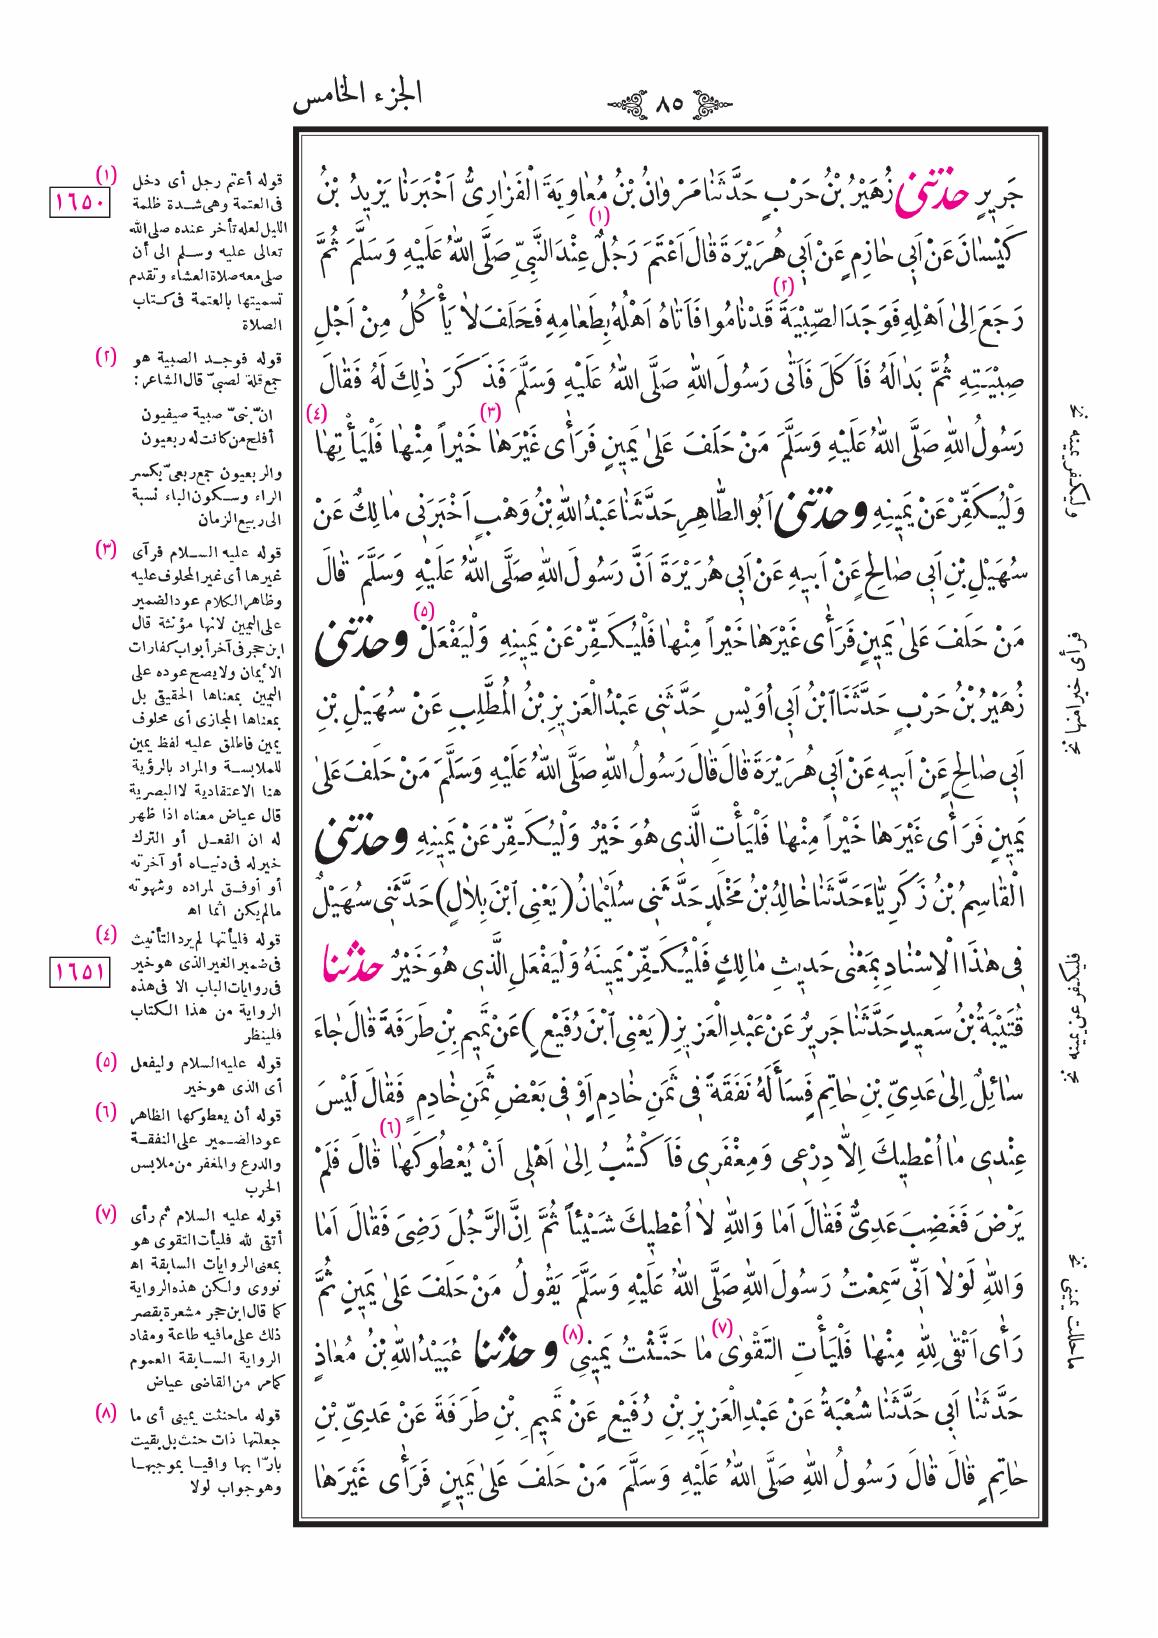 الجزء الخامس
٨٥
جَرِيرٍ حَدَّثَنِي زُهَيْرُ بْنُ حَرْبٍ حَدَّثَنَا مَرْوَانُ بْنُ مُعَاوِيَةَ الْفَزَارِيُّ أَخْبَرَنَا يَزِيدُ بْنُ
كَيْسَانَ عَنْ أَبِي حَازِمٍ عَنْ أَبِي هُرَيْرَةَ قَالَ أَعْتَمَ (١) رَجُلٌ عِنْدَ النَّبِيِّ صَلَّى اللهُ عَلَيْهِ وَسَلَّمَ ثُمَّ
رَجَعَ إِلَى أَهْلِهِ فَوَجَدَ الصِّبْيَةَ (٢) قَدْ نَامُوا فَأَتَاهُ أَهْلُهُ بِطَعَامِهِ فَحَلَفَ لَا يَأْكُلُ مِنْ أَجْلِ
صِبْيَتِهِ ثُمَّ بَدَا لَهُ فَأَكَلَ فَأَتَى رَسُولَ اللهِ صَلَّى اللهُ عَلَيْهِ وَسَلَّمَ فَذَكَرَ ذٰلِكَ لَهُ فَقَالَ
رَسُولُ اللهِ صَلَّى اللهُ عَلَيْهِ وَسَلَّمَ مَنْ حَلَفَ عَلَى يَمِينٍ فَرَأَى غَيْرَهَا (٣) خَيْرًا مِنْهَا فَلْيَأْتِهَا (٤)
وَلْيُكَفِّرْ عَنْ يَمِينِهِ وَحَدَّثَنِي أَبُو الطَّاهِرِ حَدَّثَنَا عَبْدُ اللهِ بْنُ وَهْبٍ أَخْبَرَنِي مَالِكٌ عَنْ
سُهَيْلِ بْنِ أَبِي صَالِحٍ عَنْ أَبِيهِ عَنْ أَبِي هُرَيْرَةَ أَنَّ رَسُولَ اللهِ صَلَّى اللهُ عَلَيْهِ وَسَلَّمَ قَالَ
مَنْ حَلَفَ عَلَى يَمِينٍ فَرَأَى غَيْرَهَا خَيْرًا مِنْهَا فَلْيُكَفِّرْ عَنْ يَمِينِهِ وَلْيَفْعَلْ (٥) وَحَدَّثَنِي
زُهَيْرُ بْنُ حَرْبٍ حَدَّثَنَا ابْنُ أَبِي أُوَيْسٍ حَدَّثَنِي عَبْدُ الْعَزِيزِ بْنُ الْمُطَّلِبِ عَنْ سُهَيْلِ بْنِ
أَبِي صَالِحٍ عَنْ أَبِيهِ عَنْ أَبِي هُرَيْرَةَ قَالَ قَالَ رَسُولُ اللهِ صَلَّى اللهُ عَلَيْهِ وَسَلَّمَ مَنْ حَلَفَ عَلَى
يَمِينٍ فَرَأَى غَيْرَهَا خَيْرًا مِنْهَا فَلْيَأْتِ الَّذِي هُوَ خَيْرٌ وَلْيُكَفِّرْ عَنْ يَمِينِهِ وَحَدَّثَنِي
الْقَاسِمُ بْنُ زَكَرِيَّاءَ حَدَّثَنَا خَالِدُ بْنُ مَخْلَدٍ حَدَّثَنِي سُلَيْمَانُ (يَعْنِي ابْنَ بِلَالٍ) حَدَّثَنِي سُهَيْلٌ
فِي هٰذَا الْإِسْنَادِ بِمَعْنَى حَدِيثِ مَالِكٍ فَلْيُكَفِّرْ يَمِينَهُ وَلْيَفْعَلِ الَّذِي هُوَ خَيْرٌ حَدَّثَنَا
قُتَيْبَةُ بْنُ سَعِيدٍ حَدَّثَنَا جَرِيرٌ عَنْ عَبْدِ الْعَزِيزِ (يَعْنِي ابْنَ رُفَيْعٍ) عَنْ تَمِيمِ بْنِ طَرَفَةَ قَالَ جَاءَ
سَائِلٌ إِلَى عَدِيِّ بْنِ حَاتِمٍ فَسَأَلَهُ نَفَقَةً فِي ثَمَنِ خَادِمٍ أَوْ فِي بَعْضِ ثَمَنِ خَادِمٍ فَقَالَ لَيْسَ
عِنْدِي مَا أُعْطِيكَ إِلَّا دِرْعِي وَمِغْفَرِي فَأَكْتُبُ إِلَى أَهْلِي أَنْ يُعْطُوكَهَا (٦) قَالَ فَلَمْ
يَرْضَ فَغَضِبَ عَدِيٌّ فَقَالَ أَمَا وَاللهِ لَا أُعْطِيكَ شَيْئًا ثُمَّ إِنَّ الرَّجُلَ رَضِيَ فَقَالَ أَمَا
وَاللهِ لَوْلَا أَنِّي سَمِعْتُ رَسُولَ اللهِ صَلَّى اللهُ عَلَيْهِ وَسَلَّمَ يَقُولُ مَنْ حَلَفَ عَلَى يَمِينٍ ثُمَّ
رَأَى أَتْقَى لِلّٰهِ مِنْهَا فَلْيَأْتِ التَّقْوَى (٧) مَا حَنَّثْتُ يَمِينِي (٨) وَحَدَّثَنَا عُبَيْدُ اللهِ بْنُ مُعَاذٍ
حَدَّثَنَا أَبِي حَدَّثَنَا شُعْبَةُ عَنْ عَبْدِ الْعَزِيزِ بْنِ رُفَيْعٍ عَنْ تَمِيمِ بْنِ طَرَفَةَ عَنْ عَدِيِّ بْنِ
حَاتِمٍ قَالَ قَالَ رَسُولُ اللهِ صَلَّى اللهُ عَلَيْهِ وَسَلَّمَ مَنْ حَلَفَ عَلَى يَمِينٍ فَرَأَى غَيْرَهَا
وليكفر يمينه نخ
فرأى خيرا منها نخ
فليكفر عن يمينه نخ
ما حنثت يمينى نخ
١٦٥٠
(١) قوله أعتم رجل أى دخل
فى العتمة وهى شدة ظلمة
الليل لعله تأخر عنده صلى الله
تعالى عليه وسلم الى أن
صلى معه صلاة العشاء وتقدم
تسميتها بالعتمة فى كتاب
الصلاة
(٢) قوله فوجد الصبية هو
جمع قلة لصبى قال الشاعر :
ان بنى صبية صيفيون
أفلح من كانت له ربعيون
والربعيون جمع ربعى بكسر
الراء وسكون الباء نسبة
الى ربيع الزمان
(٣) قوله عليه السلام فرآى
غيرها أى غير المحلوف عليه
وظاهر الكلام عود الضمير
على اليمين لانها مؤنثة قال
ابن حجر فى آخر أبواب كفارات
الأيمان ولا يصح عوده على
اليمين بمعناها الحقيقى بل
بمعناها المجازى أى محلوف
يمين فاطلق عليه لفظ يمين
للملابسة والمراد بالرؤية
هنا الاعتقادية لا البصرية
قال عياض معناه اذا ظهر
له ان الفعل أو الترك
خير له فى دنياه أو آخرته
أو أوفق لمراده وشهوته
مالم يكن اثما اه
١٦٥١
(٤) قوله فليأتها لم يرد التأنيث
فى ضمير الغير الذى هو خير
فى روايات الباب الا فى هذه
الرواية من هذا الكتاب
فلينظر
(٥) قوله عليه السلام وليفعل
أى الذى هو خير
(٦) قوله أن يعطوكها الظاهر
عود الضمير على النفقة
والدرع والمغفر من ملابس
الحرب
(٧) قوله عليه السلام ثم رأى
أتقى لله فليأت التقوى هو
بمعنى الروايات السابقة اه
نووى ولكن هذه الرواية
كما قال ابن حجر مشعرة بقصر
ذلك على مافيه طاعة ومفاد
الرواية السابقة العموم
كما مر من القاضى عياض
(٨) قوله ماحنثت يمينى أى ما
جعلتها ذات حنث بل بقيت
بارا بها وافيا بموجبها
وهو جواب لولا